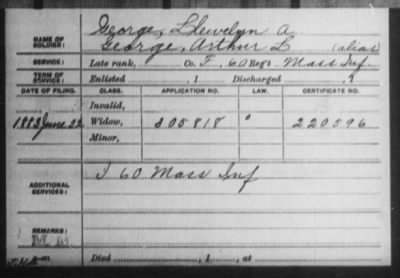 George, Llewelyn A
NAME OF SOLDIER: George, Arthur L (alias)
SERVICE: Late rank, Co. F, 60 Reg't Mass Inf.
TERM OF SERVICE: Enlisted , 1 Discharged , 1
DATE OF FILING. CLASS. APPLICATION NO. LAW. CERTIFICATE NO.
Invalid,
1883 June 22 Widow, 305818 " 220596
Minor,
ADDITIONAL SERVICES: I 60 Mass Inf
REMARKS:
Died , 1 , at